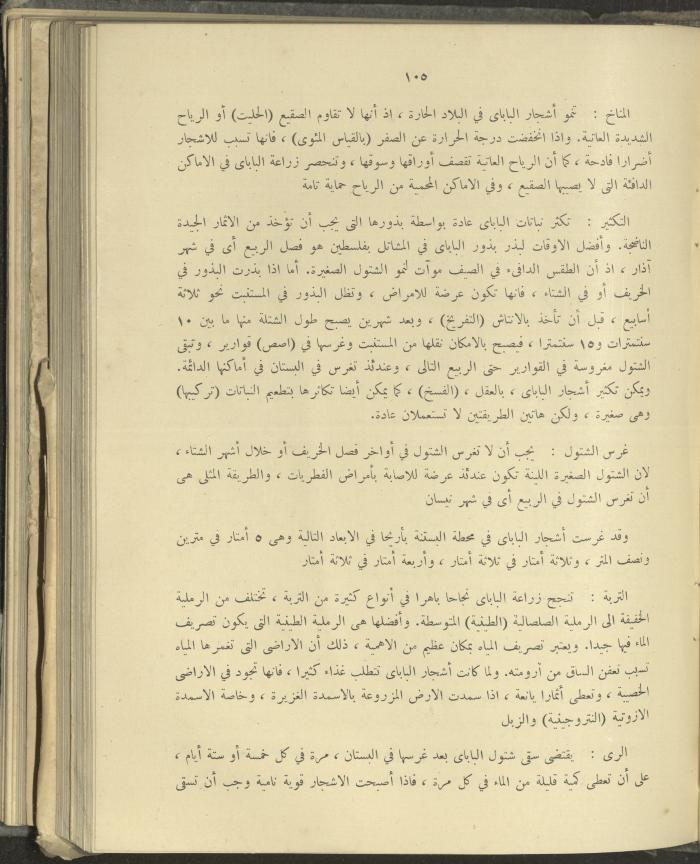 ١٠٥
المناخ : تنمو أشجار الباباى فى البلاد الحارة ، اذ أنها لا تقاوم الصقيع (الحليت) أو الرياح
الشديدة العاتية. واذا انخفضت درجة الحرارة عن الصفر (بالقياس المئوى) ، فانها تسبب للاشجار
أضرارا فادحة ، كما أن الرياح العاتية تقصف أوراقها وسوقها ، وتنحصر زراعة الباباى فى الاماكن
الدافئة التى لا يصيبها الصقيع ، وفى الاماكن المحمية من الرياح حماية تامة
التكثير : تكثر نباتات الباباى عادة بواسطة بذورها التى يجب أن تؤخذ من الاثمار الجيدة
الناضجة. وأفضل الاوقات لبذر بذور الباباى فى المشاتل بفلسطين هو فصل الربيع أى فى شهر
آذار ، اذ أن الطقس الدافىء فى الصيف موآت لنمو الشتول الصغيرة. أما اذا بذرت البذور في
الخريف أو فى الشتاء ، فانها تكون عرضة للامراض ، وتظل البذور فى المستنبت نحو ثلاثة
أسابيع ، قبل أن تأخذ بالانتاش (التفريخ) ، وبعد شهرين يصبح طول الشتلة منها ما بين ١٠
سنتمترات و١٥ سنتمترا ، فيصبح بالامكان نقلها من المستنبت وغرسها في (اصص) قوارير ، وتبقى
الشتول مغروسة في القوارير حتى الربيع التالى ، وعندئذ تغرس في البستان في أماكنها الدائمة.
ويمكن تكثير أشجار الباباى ، بالعقل ، (الفسخ) ، كما يمكن أيضا تكاثرها بتطعيم النباتات (تركيبها)
وهى صغيرة ، ولكن هاتين الطريقتين لا تستعملان عادة.
غرس الشتول : يجب أن لا تغرس الشتول فى أواخر فصل الخريف أو خلال أشهر الشتاء ،
لان الشتول الصغيرة اللينة تكون عندئذ عرضة للاصابة بأمراض الفطريات ، والطريقة المثلى هى
أن تغرس الشتول فى الربيع أى فى شهر نيسان
وقد غرست أشجار الباباى فى محطة البستنة بأريحا فى الابعاد التالية وهى ٥ أمتار في مترين
ونصف المتر ، وثلاثة أمتار في ثلاثة أمتار ، وأربعة أمتار في ثلاثة أمتار
التربة : تنجح زراعة الباباى نجاحا باهرا في أنواع كثيرة من التربة ، تختلف من الرملية
الخفيفة الى الرملية الصلصالية (الطينية) المتوسطة. وأفضلها هى الرملية الطينية التى يكون تصريف
الماء فيها جيدا. ويعتبر تصريف المياه بمكان عظيم من الاهمية ، ذلك أن الاراضى التى تغمرها المياه
تسبب تعفن الساق من أرومته. ولما كانت أشجار الباباى تتطلب غذاء كثيرا ، فانها تجود في الاراضى
الخصيبة ، وتعطى أثمارا يانعة ، اذا سمدت الارض المزروعة بالاسمدة الغزيرة ، وخاصة الاسمدة
الازوتية (النتروجينية) والزبل
الرى : يقتضى سقى شتول الباباى بعد غرسها في البستان ، مرة في كل خمسة أو ستة أيام ،
على أن تعطى كمية قليلة من الماء في كل مرة ، فاذا أصبحت الاشجار قوية نامية وجب أن تسقى